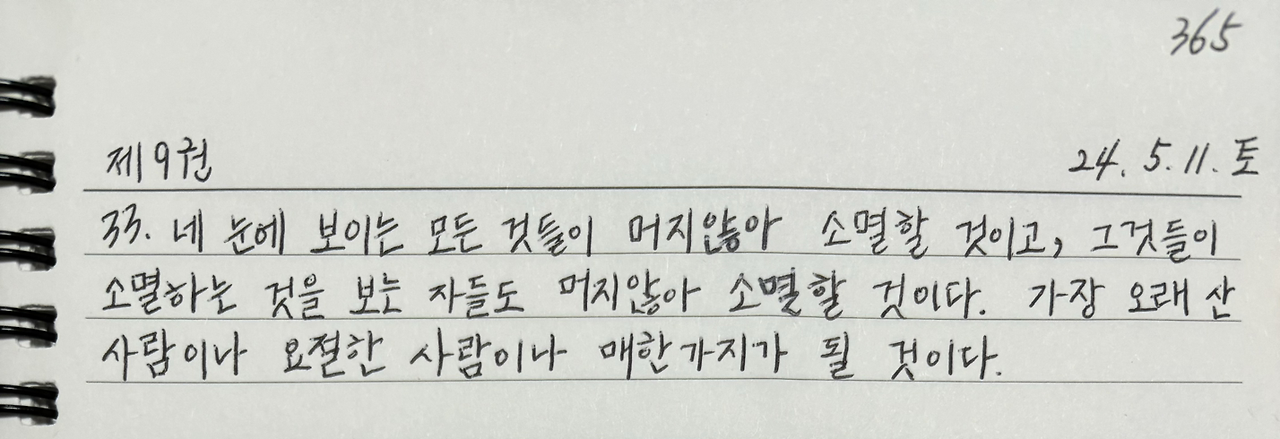 365
제9권 24. 5. 11. 토
33. 네 눈에 보이는 모든 것들이 머지않아 소멸할 것이고, 그것들이
소멸하는 것을 보는 자들도 머지않아 소멸할 것이다. 가장 오래 산
사람이나 요절한 사람이나 매한가지가 될 것이다.